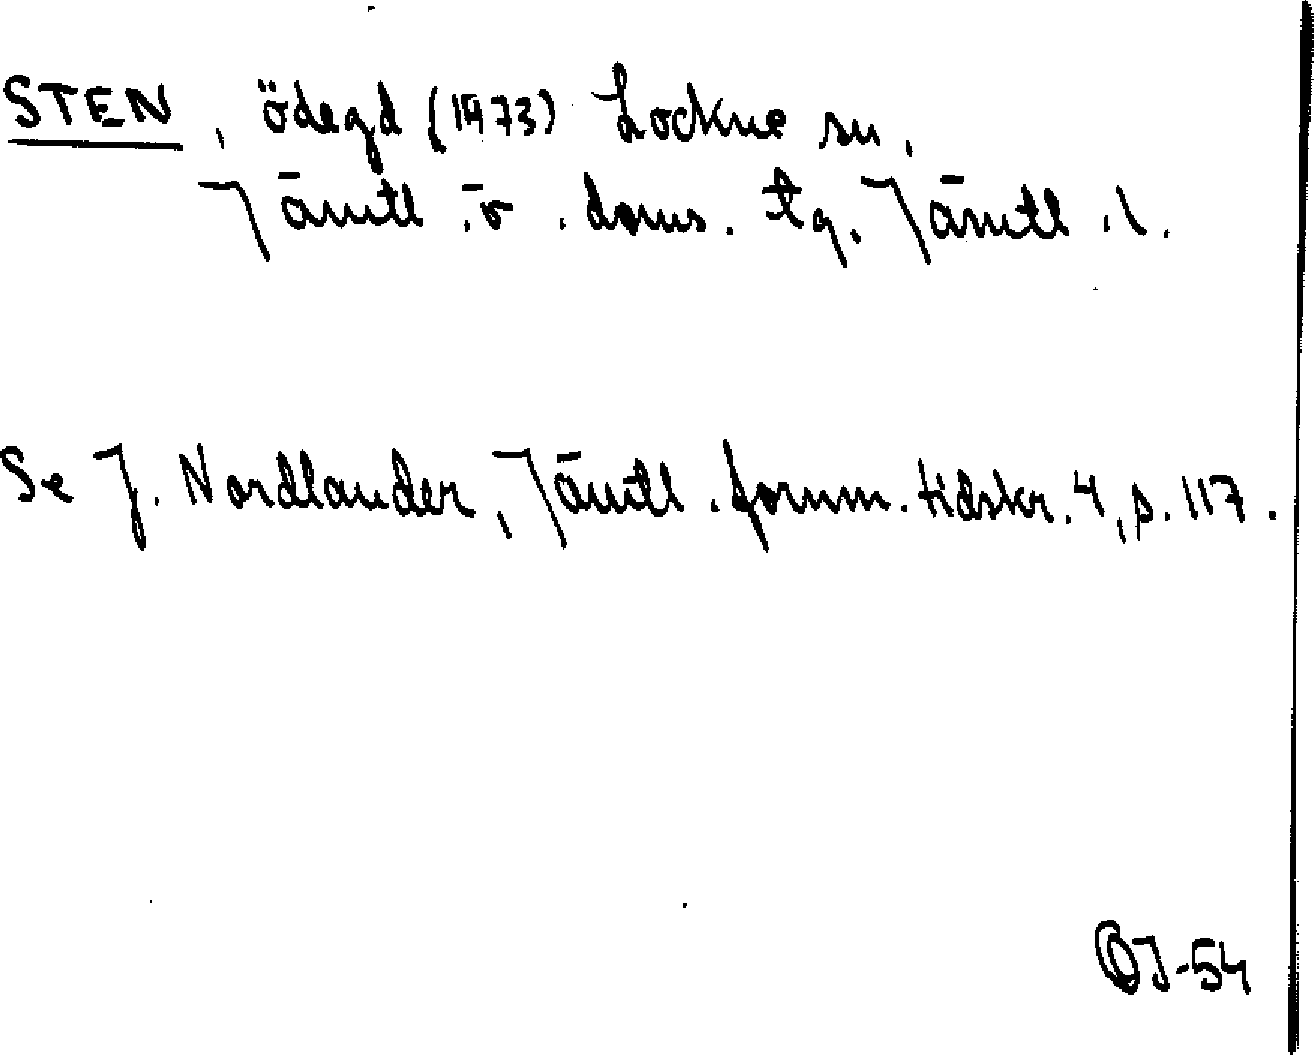 STEN, ödegd (1473) Lockne sn,
Jämtl. ö. doms. tg. Jämtl. l.
Se J. Nordlander, Jämtl. fornm. tidskr. 4, s. 117.
OJ-54